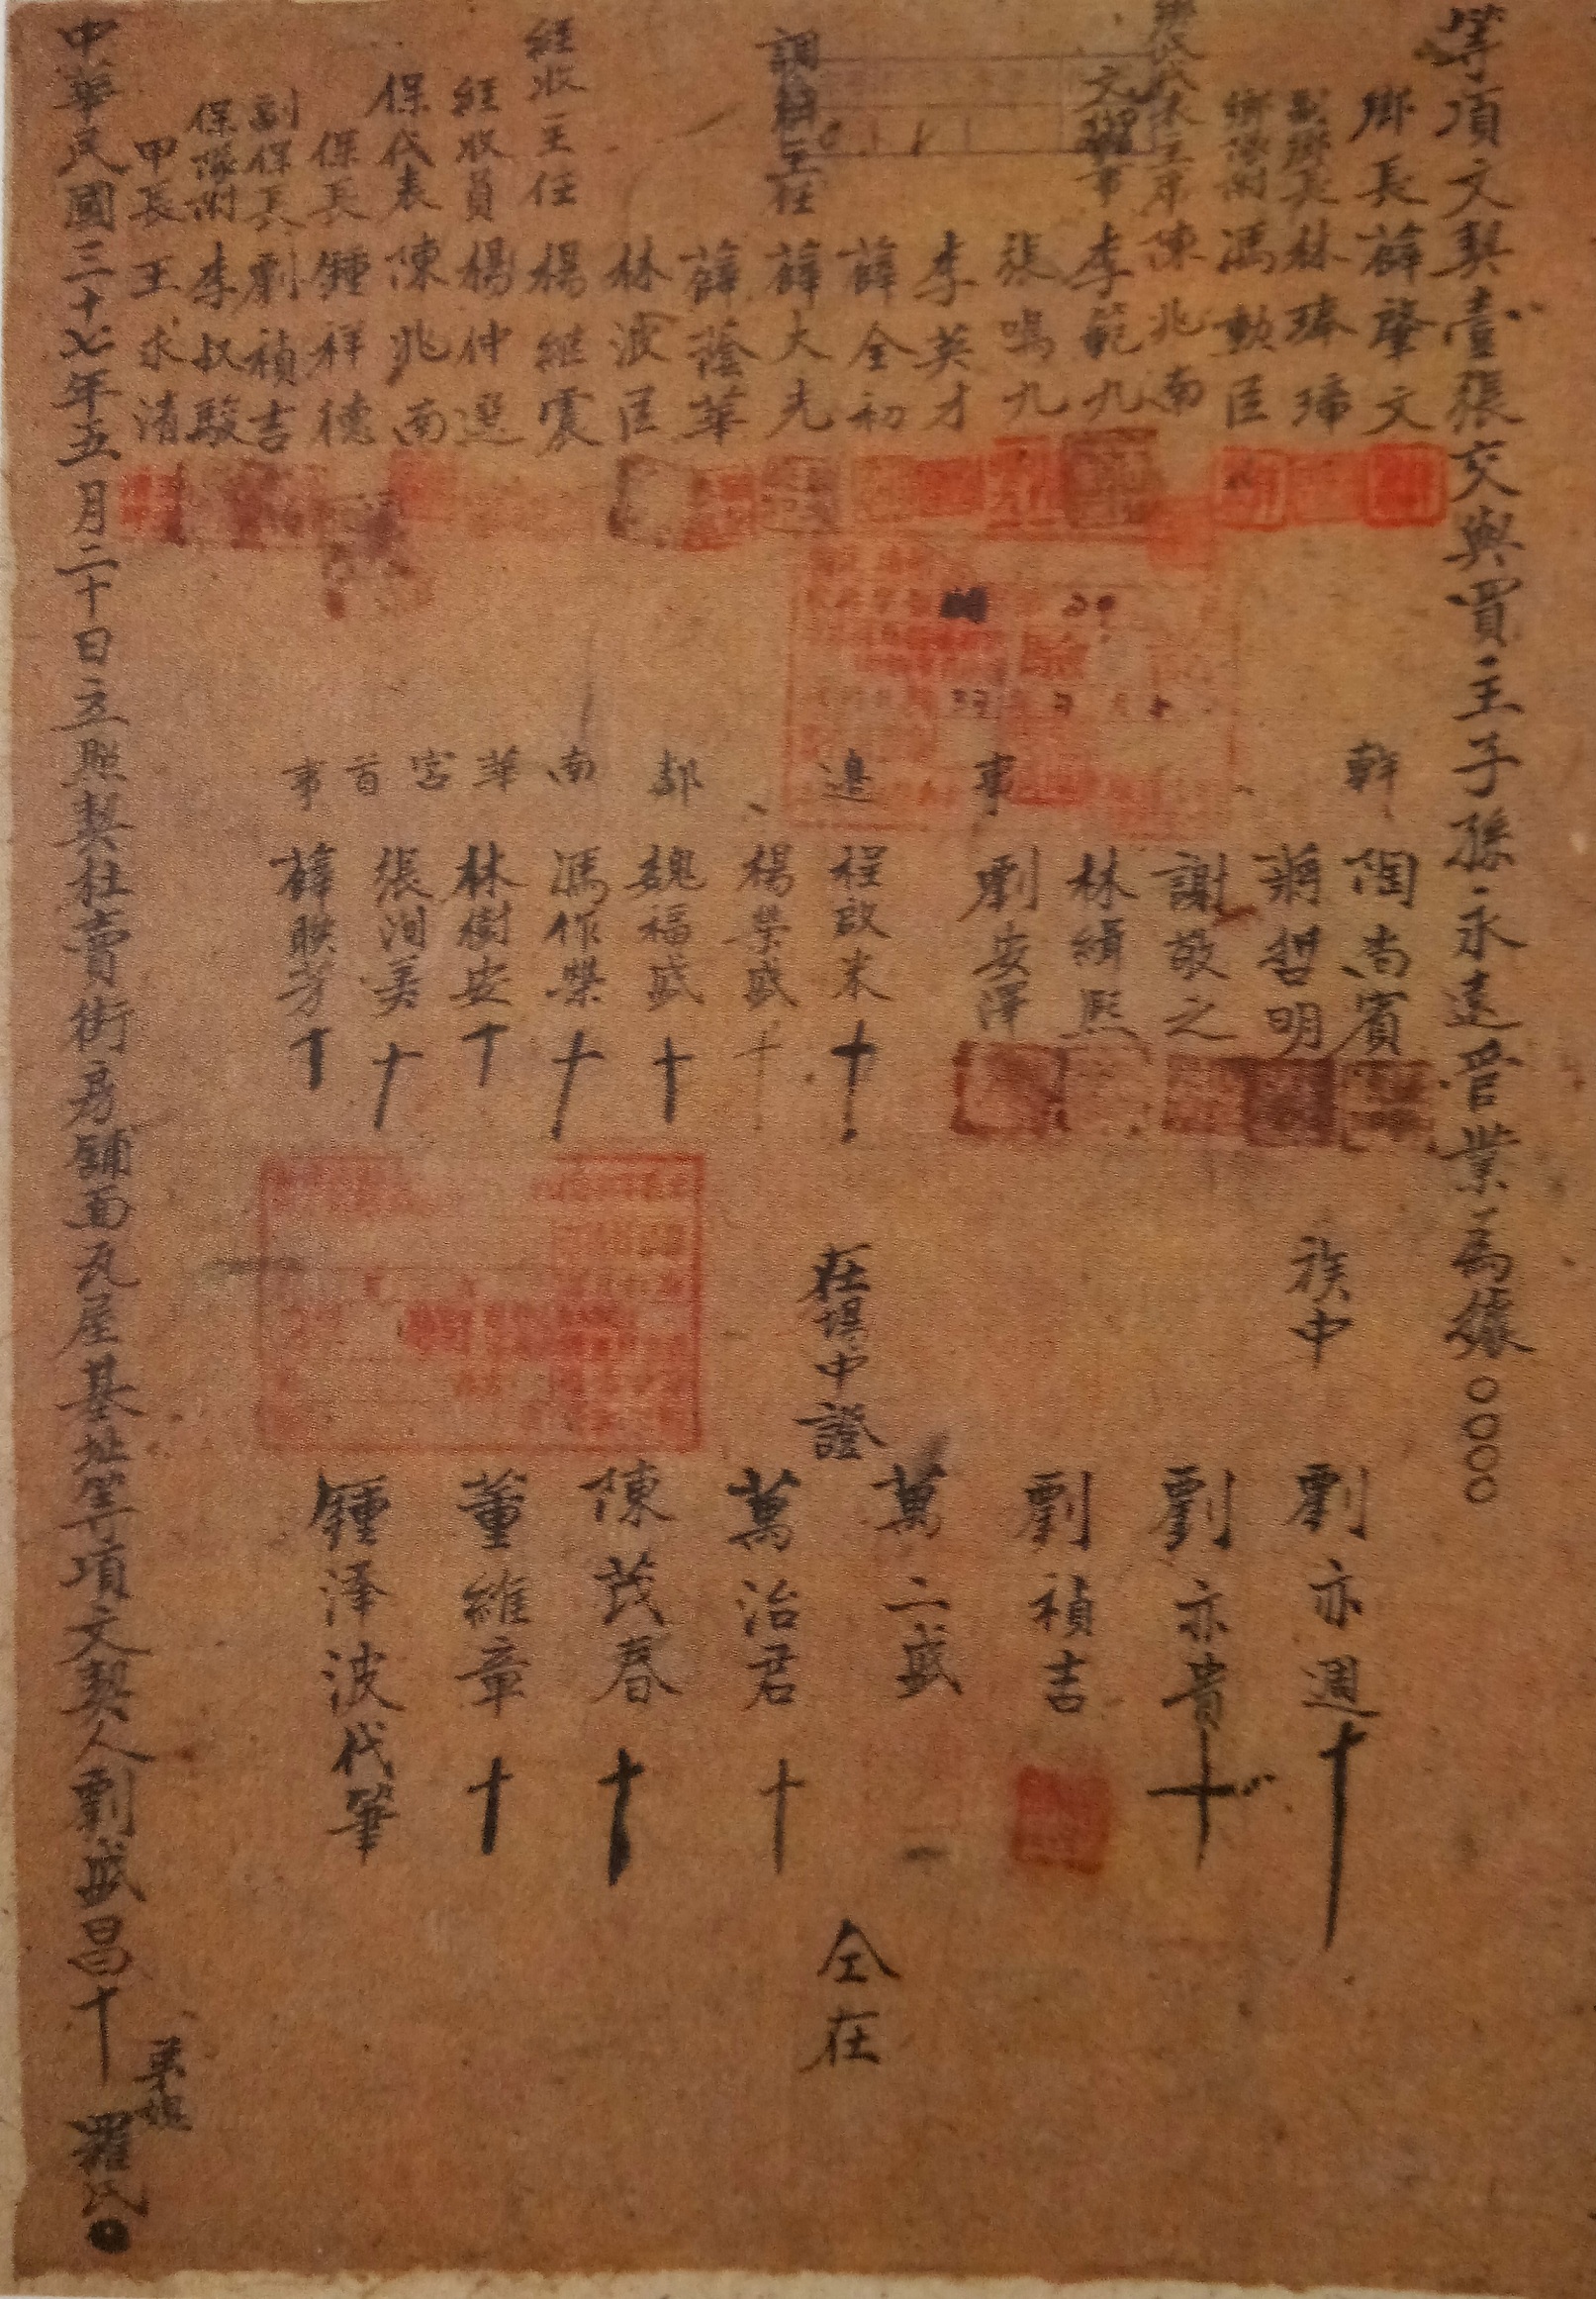 等項文契壹張交與買主子孫永遠管業為據○○○○
鄉長薛肇文
副鄉長林琫璋
鄉隊附馮勳臣
主席陳兆南
文化幹事李範九
張鳴九
李英才
薛全初
調解主任薛大光
薛蔭華
林波臣
經收主任楊繼震
經收員楊仲選
保代表陳兆南
保長鍾祥德
副保長劉禎吉
保隊附李叔駿
甲長王永清
幹事
陶尚賓
蔣哲明
謝敬之
林緝熙
劉安澤
邊
程啟末十
楊榮盛十
鄰
魏福盛十
南華宮首事
馮作榮十
林樹安十
張洵美十
薛联芳十
族中
劉亦週十
劉亦貴十
劉禎吉
在場中證
萬二盛
萬治君十
陳茂春十
董維章十
鍾泽波代筆
仝在
中華民國三十七年五月二十日立照契杜賣街房舖面瓦屋基址等項文契人劉盛昌十
弟媳
羅氏